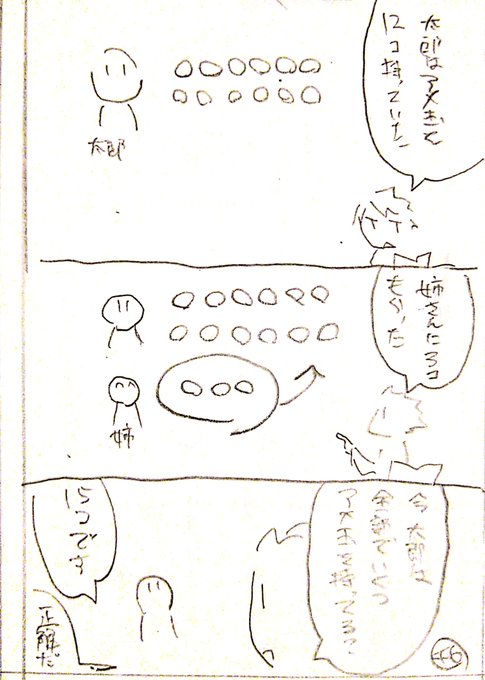 太郎はアメ玉を
12コ持っていた
太郎
姉さんに3コ
もらった
姉
今、太郎は
全部でいくつ
アメ玉を持ってる?
15コです
正解だ